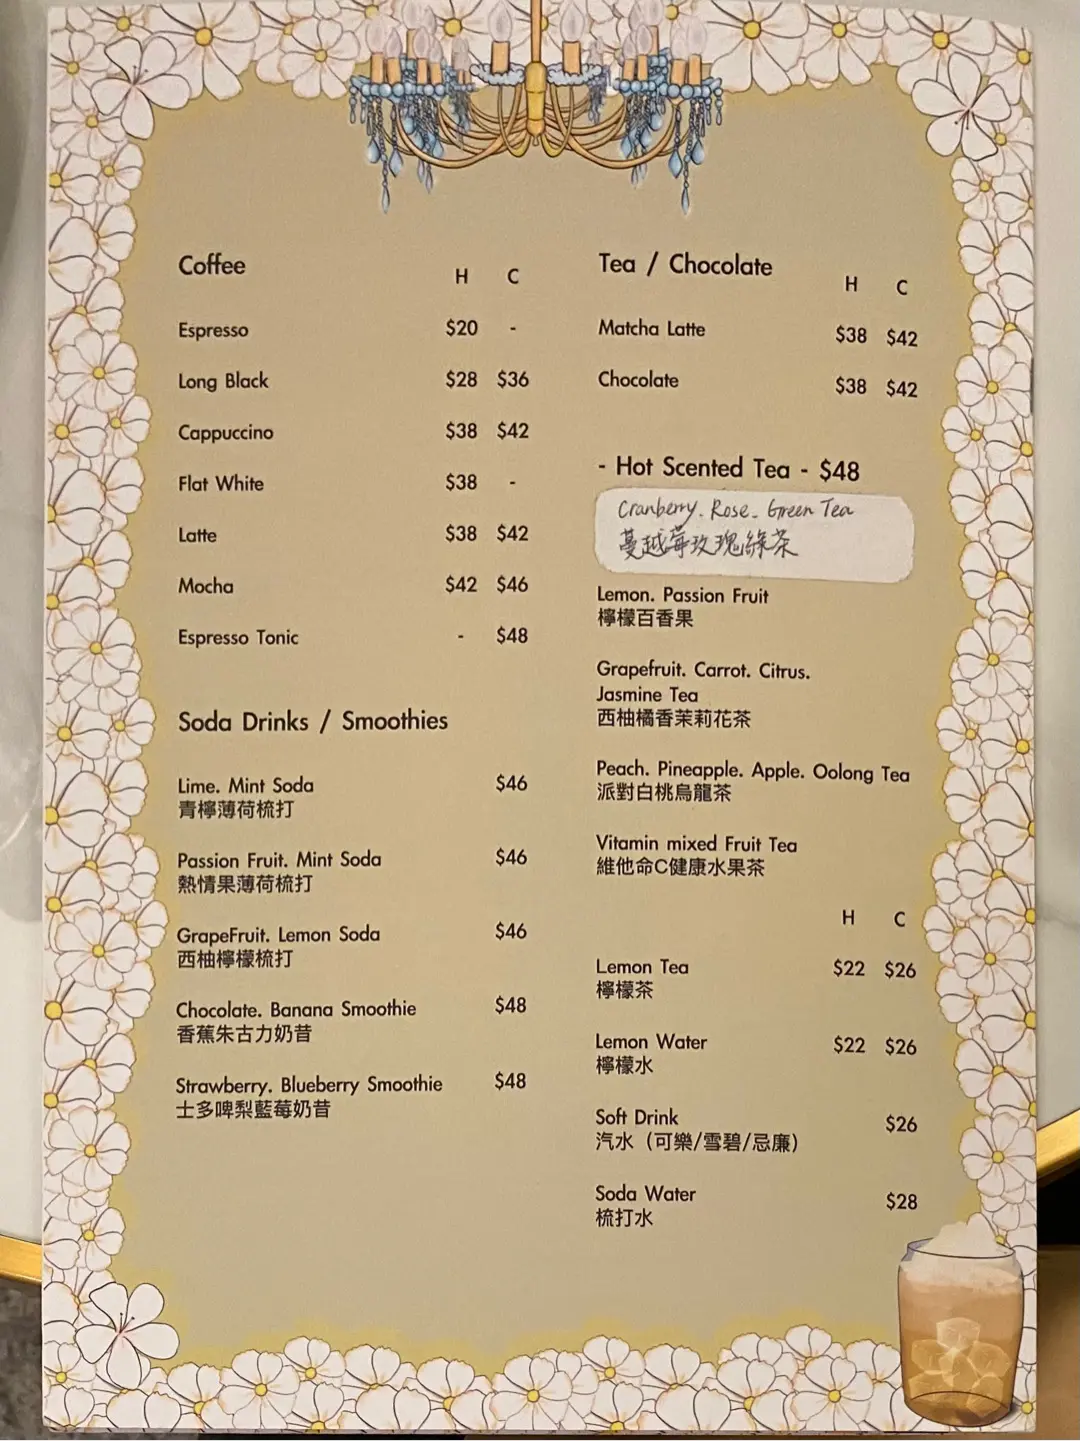 Coffee
H C
Espresso $20 -
Long Black $28 $36
Cappuccino $38 $42
Flat White $38 -
Latte $38 $42
Mocha $42 $46
Espresso Tonic - $48
Soda Drinks / Smoothies
Lime. Mint Soda $46
青檸薄荷梳打
Passion Fruit. Mint Soda $46
熱情果薄荷梳打
GrapeFruit. Lemon Soda $46
西柚檸檬梳打
Chocolate. Banana Smoothie $48
香蕉朱古力奶昔
Strawberry. Blueberry Smoothie $48
士多啤梨藍莓奶昔
Tea / Chocolate
H C
Matcha Latte $38 $42
Chocolate $38 $42
- Hot Scented Tea - $48
Cranberry. Rose. Green Tea
蔓越莓玫瑰綠茶
Lemon. Passion Fruit
檸檬百香果
Grapefruit. Carrot. Citrus.
Jasmine Tea
西柚橘香茉莉花茶
Peach. Pineapple. Apple. Oolong Tea
派對白桃烏龍茶
Vitamin mixed Fruit Tea
維他命C健康水果茶
H C
Lemon Tea $22 $26
檸檬茶
Lemon Water $22 $26
檸檬水
Soft Drink $26
汽水（可樂/雪碧/忌廉）
Soda Water $28
梳打水